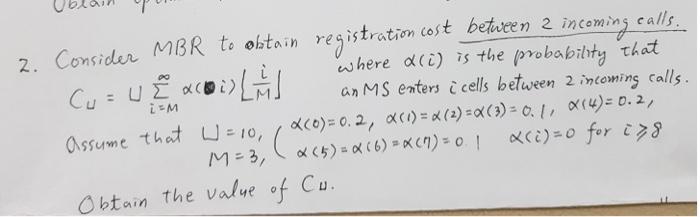 Obtain
2. Consider MBR to obtain registration cost between 2 incoming calls.
C_U = U ∑_{i=M}^{∞} α(i) ⌊i/M⌋ where α(i) is the probability that
an MS enters i cells between 2 incoming calls.
Assume that U=10, M=3, ( α(0)=0.2, α(1)=α(2)=α(3)=0.1, α(4)=0.2,
α(5)=α(6)=α(7)=0.1 α(i)=0 for i≥8
Obtain the value of C_U.